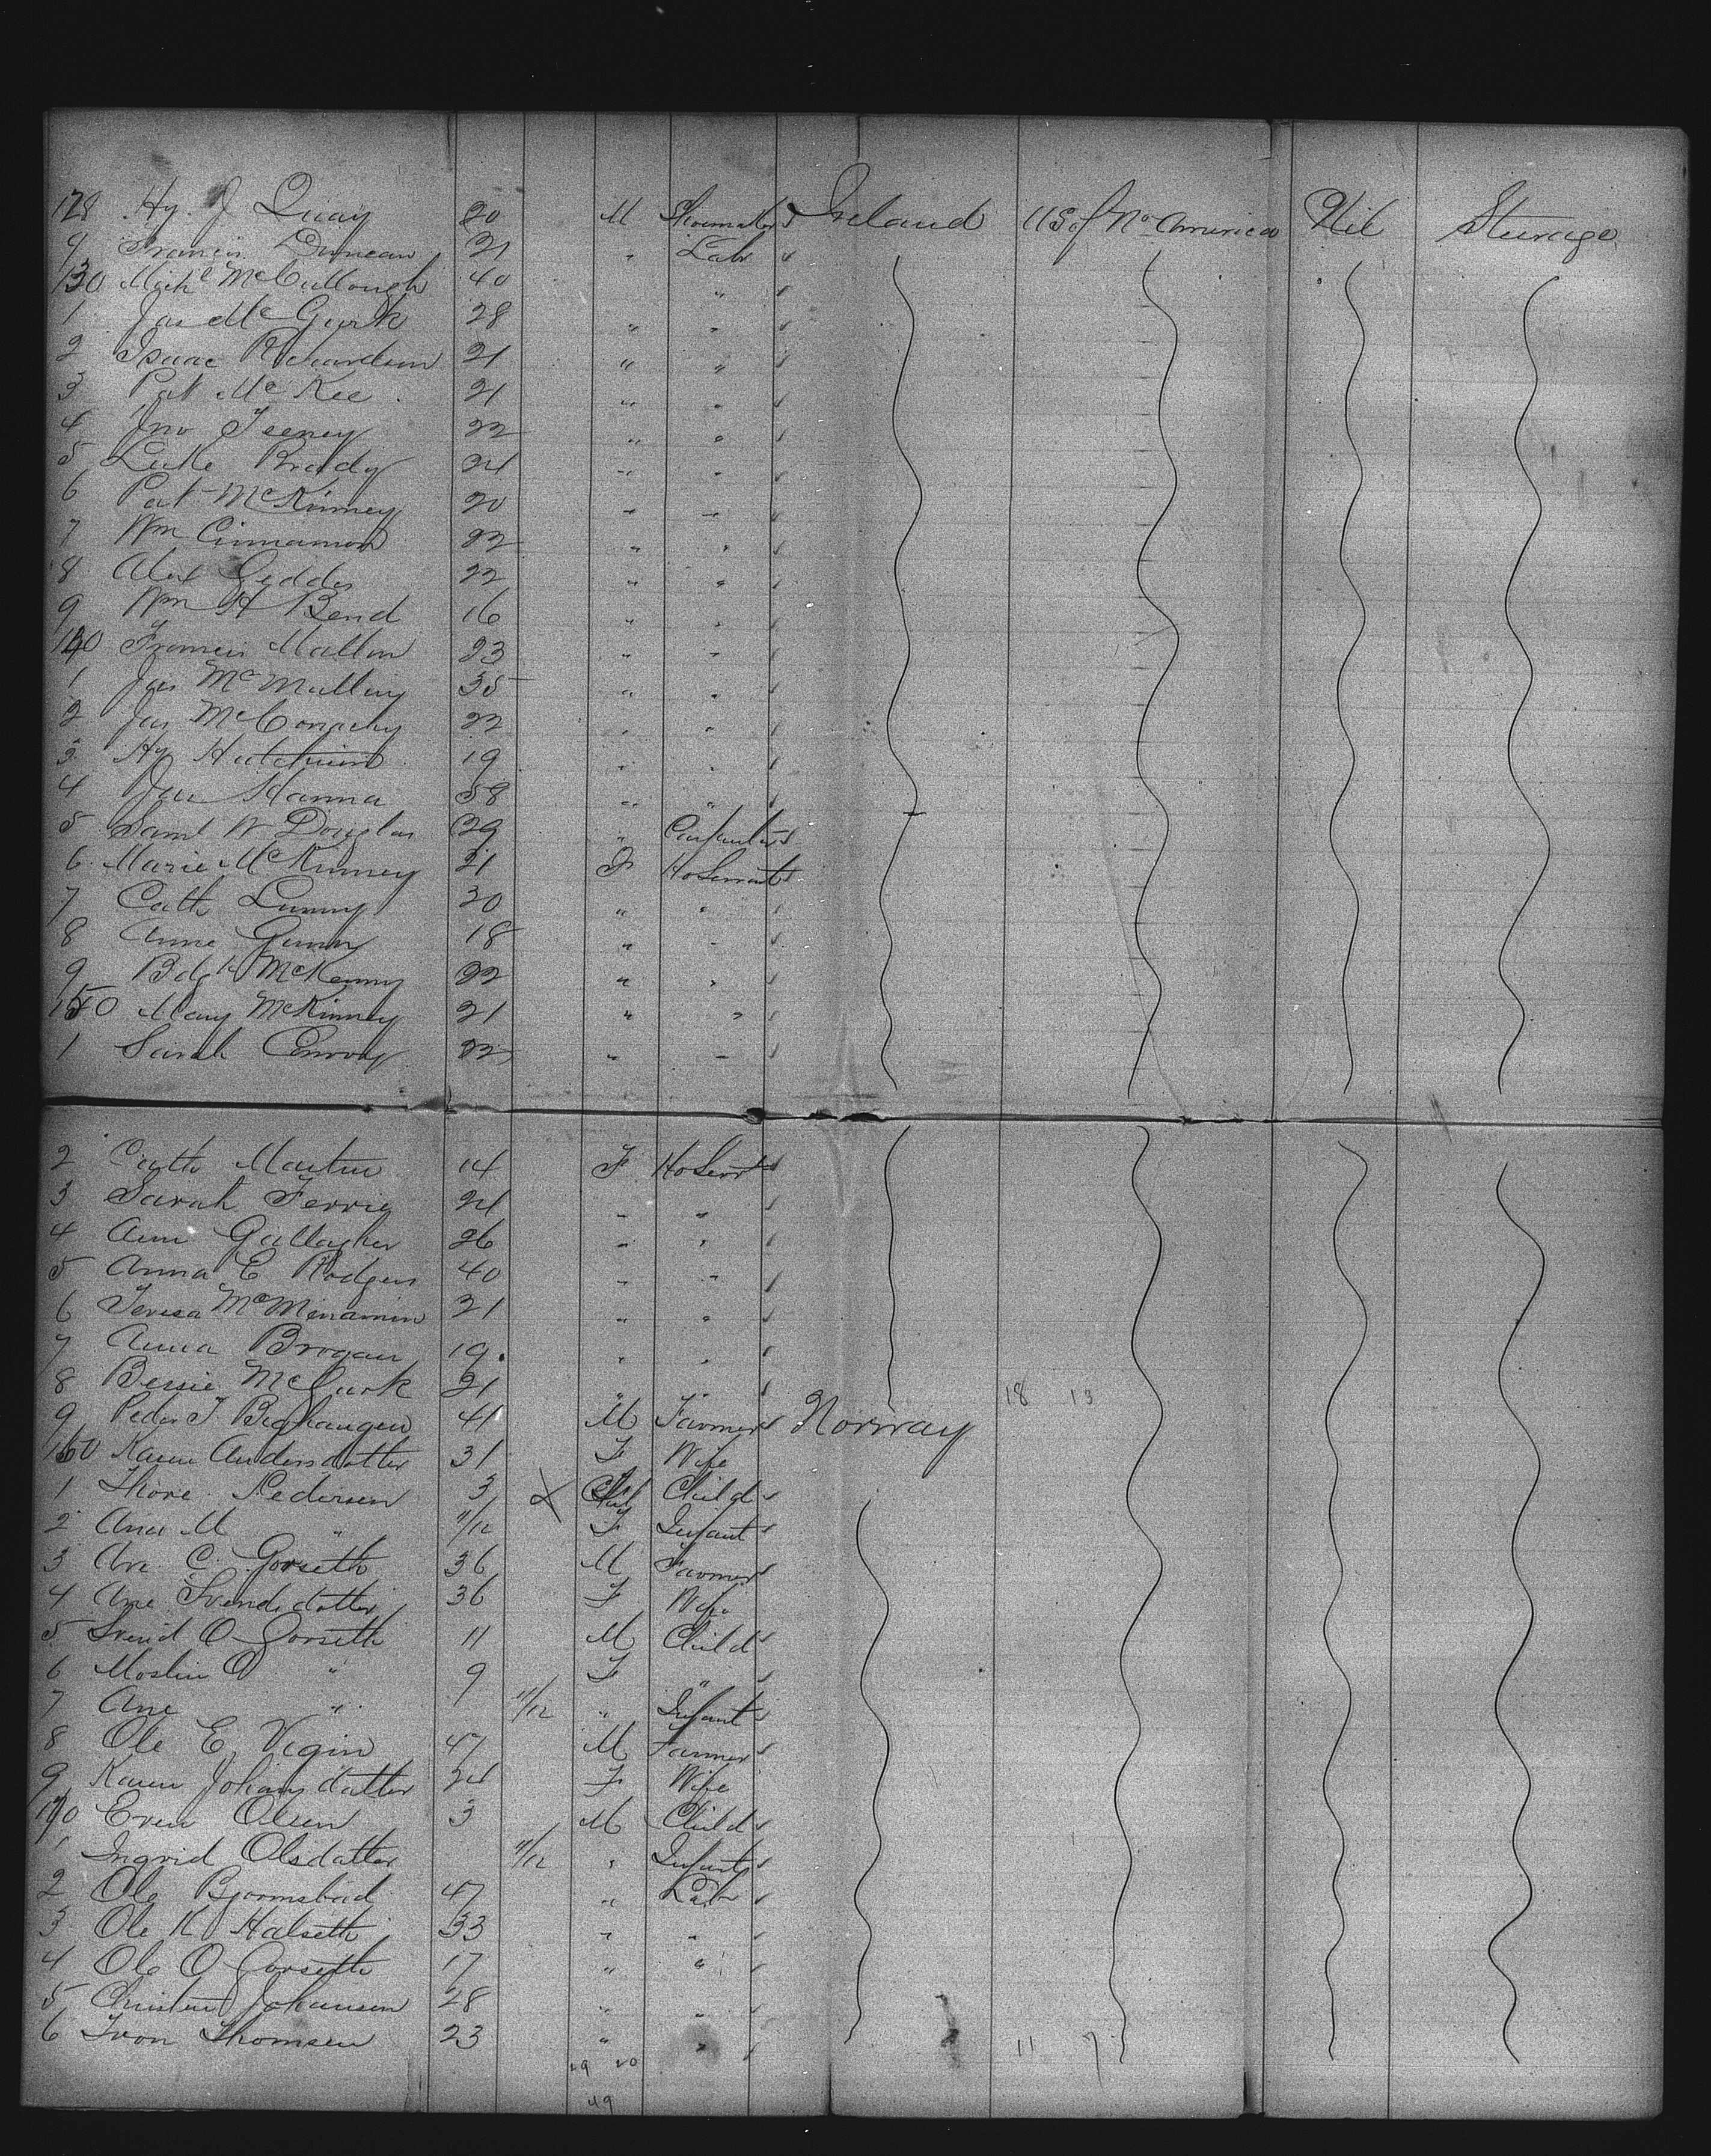 128 Hy. J Quay 20 M Shoemaker Ireland U S of No America Nil Steerage
9 Francis Duncan 21 " Lab
130 Michl McCullough 40 "
1 Jas McGurk 28 " "
2 Isaac Richardson 21 " "
3 Pat McKee 21 " "
4 Jno Feeney 22 " "
5 Luke Brady 24 " "
6 Pat McKinney 20 " "
7 Wm Cinnamon 22 " "
8 Alex Geddes 22 " "
9 Wm H Bend 16 " "
140 Francis Mallon 23 " "
1 Jas 35 " "
2 Jas McConachy 22 " "
3 Hy 19 " "
4 Hanna 58 " "
5 Saml W Douglas 29 " Carpenter
6 Marie McKinney 21 F Ho Servant
7 Cath Lunny 20 " "
8 Anne Gunn 18 " "
9 McKenny 22 " "
150 Mary McKinney 21 " "
1 Sarah Conroy 22 " "
2 Cath Martin 14 F Ho Servt
3 Sarah 24 " "
4 Ann Gallagher 26 " "
5 Anna E Rodgers 40 " "
6 Teresa McMenamin 21 " "
7 Anna Brogan 19 " "
8 Bessie McGurk 21 " " 18 13
9 Peder T 41 M Farmer Norway
160 Karen Andersdatter 31 F Wife
1 Thore Pedersen 3 X Child
2 Ana M " 11/12 F Infant
3 C. Gorseth 36 M Farmer
4 Ane Svendsdatter 36 F Wife
5 Svend O Gorseth 11 M Child
6 O " 9 F "
7 Ane " 11/12 " Infant
8 Ole E Vigin 47 M Farmer
9 Karen Johansdatter 24 F Wife
170 Even Olsen 3 M Child
1 Ingrid Olsdatter 11/12 " Infant
2 Ole 47 " Lab
3 Ole K Halseth 33 " "
4 Ole O Gorseth 17 " "
5 Johansen 28 " "
6 Thomsen 23 " " 11 7
29 20
49